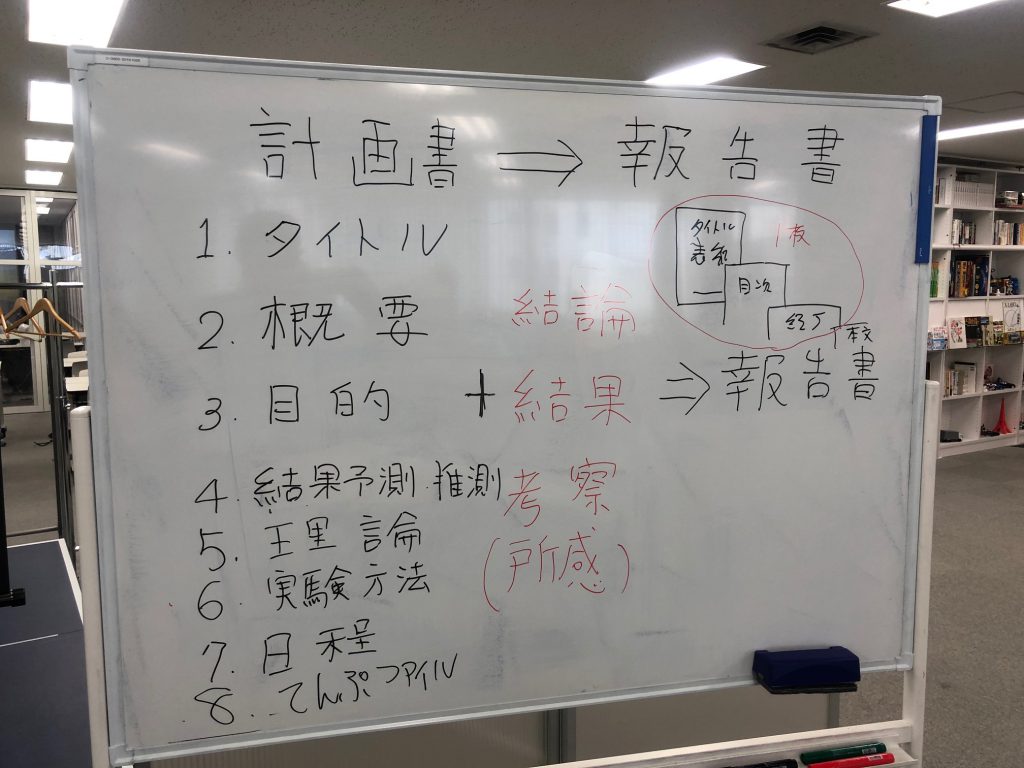 計画書 ⇒ 報告書
1. タイトル
タイトル
1枚
目次
2. 概要
結論
3. 目的 + 結果 ⇒ 報告書
4 結果予測 推測
考察
5. 理論
(所感)
6 実験方法
7. 日程
8. てんぷファイル